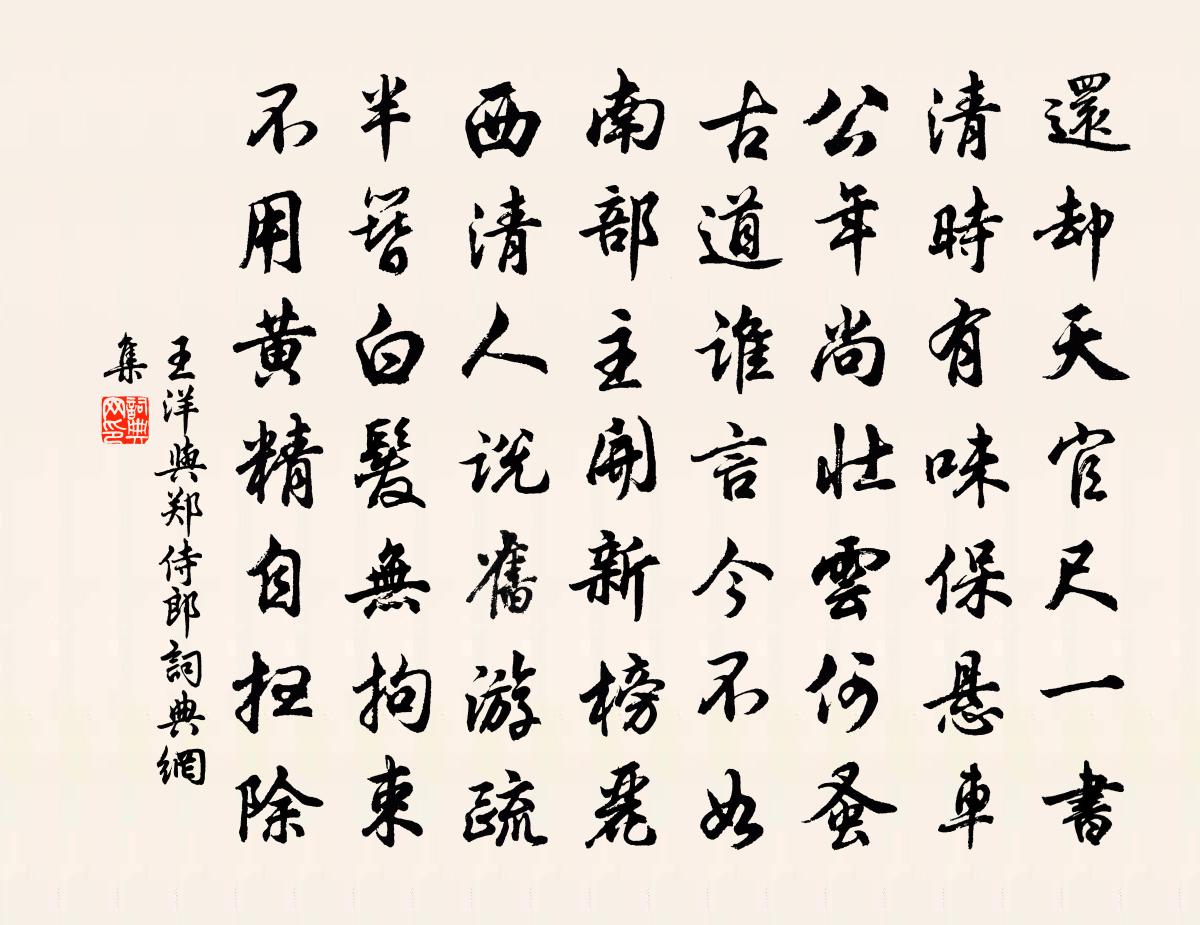 還却天官尺一書
清時有味保懸車
公年尚壯雲何蚤
古道誰言今不如
南部主開新榜麗
西清人說舊游疏
半簪白髮無拘束
不用黃精自扫除
王洋與郑侍郎詞典網
集
詞典
网印